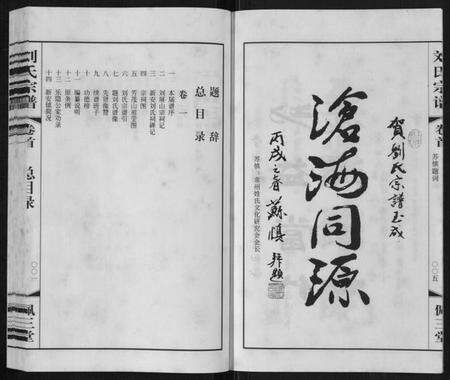 刘氏宗谱
卷首
苏慎题词
〇〇五
佩三堂
贺刘氏宗谱玉成
沧海同源
丙戌之春 苏慎 拜题
苏慎:常州姓氏文化研究会会长
题辞
总目录
卷一
一 本届谱序
二 刘屏山宗祠记
三 新安刘氏祠碑记
四 宗祠图
五 芳茂山祖茔图
六 刘氏宗谱引
七 题刘氏谱像
八 先贤像赞
九 续谱班子
十 功德榜
十一 编纂说明
十二 原条例
十三 乐隐公家劝录
十四 新安镇概况
刘氏宗谱
卷首
总目录
〇〇
佩三堂